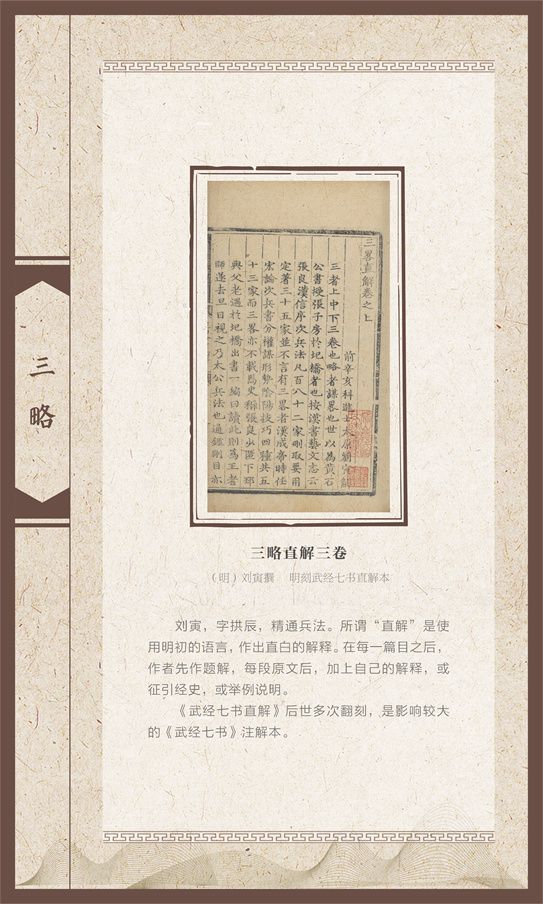 三略
三畧直解卷之上
前辛亥科進士太原劉寅解
三者上中下三卷也略者謀畧也世以為黃石
公書授張子房於圯橋者也按漢書藝文志云
張良漢信序次兵法凡百八十二家刪取要用
定著三十五家並不言有三畧者漢成帝時任
宏論次兵書分權謀形勢隂陽技巧四種共五
十三家而三畧亦不載焉史稱張良少匿下邳
與父老遇於圯橋出書一編曰讀此則為王者
師遂去旦日視之乃太公兵法也通鑑綱目亦
三略直解三卷
（明）刘寅撰　明刻武经七书直解本
刘寅，字拱辰，精通兵法。所谓“直解”是使
用明初的语言，作出直白的解释。在每一篇目之后，
作者先作题解，每段原文后，加上自己的解释，或
征引经史，或举例说明。
《武经七书直解》后世多次翻刻，是影响较大
的《武经七书》注解本。